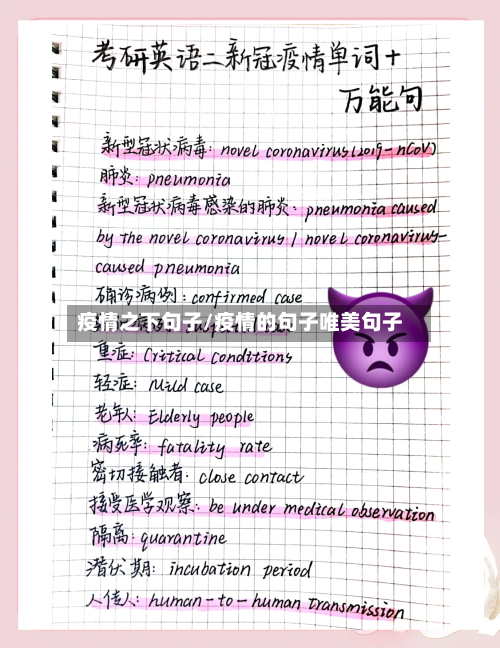 考研英语二新冠疫情单词+
万能句
新型冠状病毒: novel coronavirus(2019-nCoV)
肺炎: pneumonia
新型冠状病毒感染的肺炎: pneumonia caused
by the novel coronavirus / novel coronavirus-
caused pneumonia
确诊病例: confirmed case
疫情之下句子/疫情的句子唯美句子
重症: Critical conditions
轻症: Mild case
老年人: Elderly people
病死率: fatality rate
密切接触者: close contact
接受医学观察: be under medical observation
隔离: quarantine
潜伏期: incubation period
人传人: human-to-human transmission